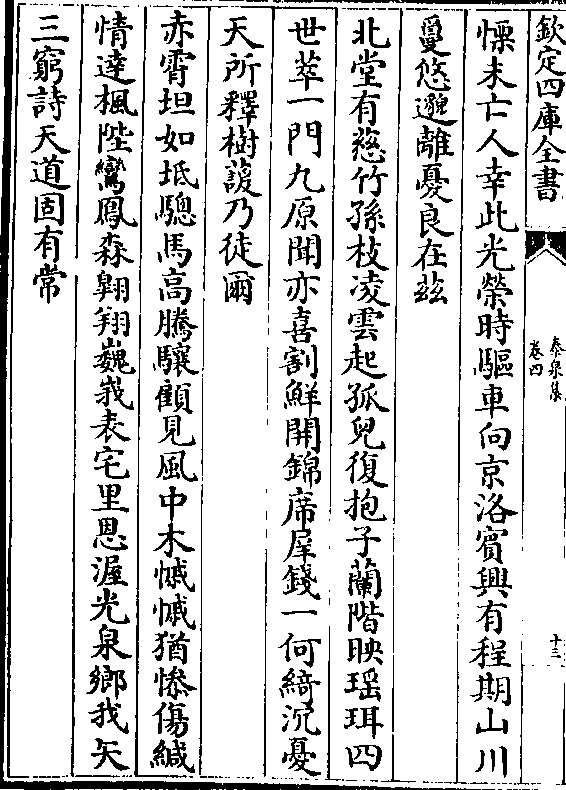 欽定四庫全書
泰泉集
卷四
十三
慄未亡人幸此光榮時驅車向京洛賓興有程期山川
敻悠邈離憂良在茲
北堂有慈竹孫枝凌雲起孤兒復抱子蘭階映瑶珥四
世萃一門九原聞亦喜割鮮開錦席犀錢一何綺沉憂
天所釋樹蘐乃徒爾
赤霄坦如坻驄馬高騰驤顧見風中木慽慽猶慘傷緘
情達楓陛鸞鳳森翱翔巍峩表宅里恩渥光泉鄉我矢
三窮詩天道固有常